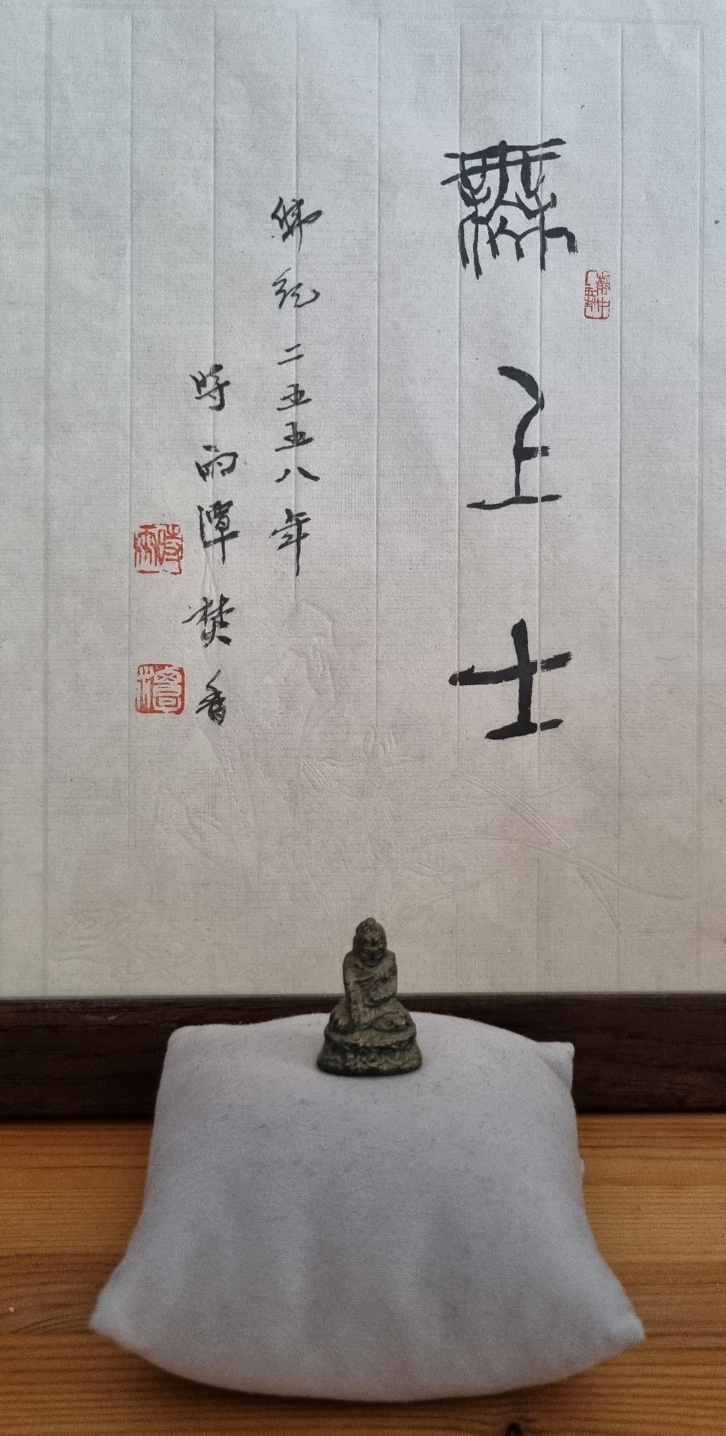 無上士
佛紀二五五八年
時雨潭焚香
時雨